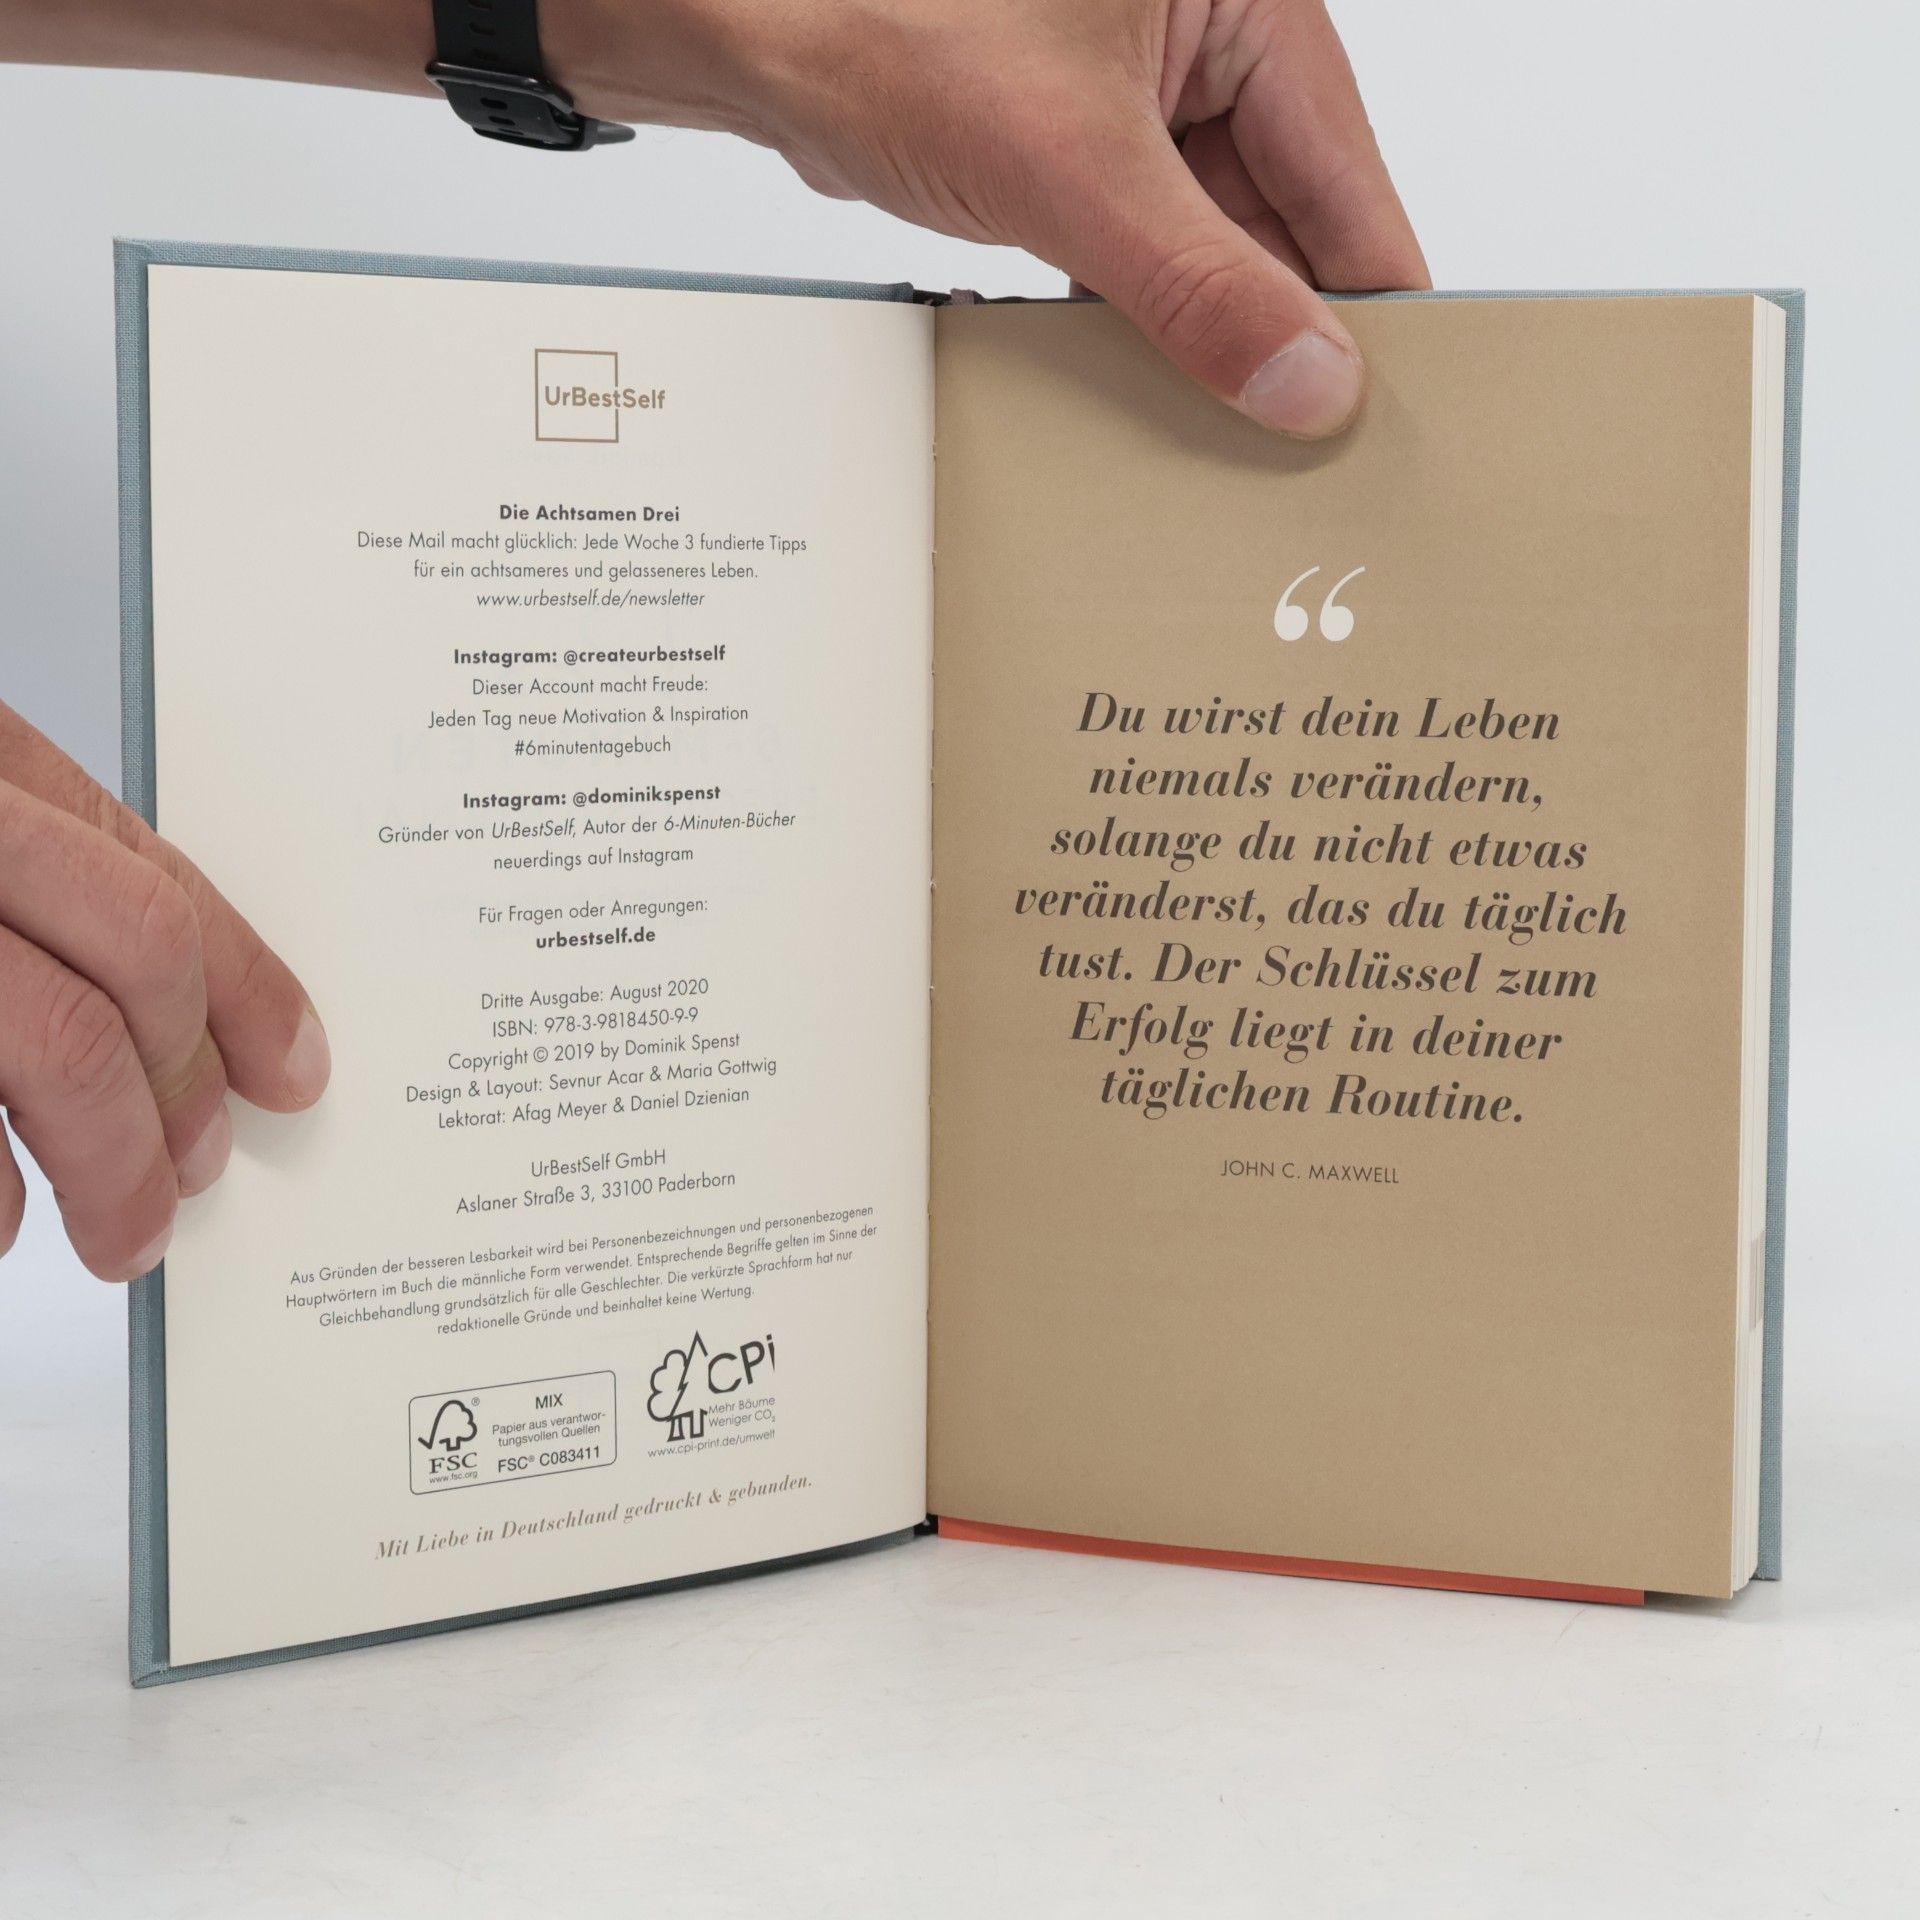 UrBestSelf
Die Achtsamen Drei
Diese Mail macht glücklich: Jede Woche 3 fundierte Tipps
für ein achtsameres und gelasseneres Leben.
www.urbestself.de/newsletter
Instagram: @createurbestself
Dieser Account macht Freude:
Jeden Tag neue Motivation & Inspiration
#6minutentagebuch
Instagram: @dominikspenst
Gründer von UrBestSelf, Autor der 6-Minuten-Bücher
neuerdings auf Instagram
Für Fragen oder Anregungen:
urbestself.de
Dritte Ausgabe: August 2020
ISBN: 978-3-9818450-9-9
Copyright © 2019 by Dominik Spenst
Design & Layout: Sevnur Acar & Maria Gottwig
Lektorat: Afag Meyer & Daniel Dzienian
UrBestSelf GmbH
Aslaner Straße 3, 33100 Paderborn
Aus Gründen der besseren Lesbarkeit wird bei Personenbezeichnungen und personenbezogenen
Hauptwörtern im Buch die männliche Form verwendet. Entsprechende Begriffe gelten im Sinne der
Gleichbehandlung grundsätzlich für alle Geschlechter. Die verkürzte Sprachform hat nur
redaktionelle Gründe und beinhaltet keine Wertung.
®
FSC
www.fsc.org
MIX
Papier aus verantwor-
tungsvollen Quellen
FSC® C083411
CPi
Mehr Bäume
Weniger CO₂
www.cpi-print.de/umwelt
Mit Liebe in Deutschland gedruckt & gebunden.
“
Du wirst dein Leben
niemals verändern,
solange du nicht etwas
veränderst, das du täglich
tust. Der Schlüssel zum
Erfolg liegt in deiner
täglichen Routine.
JOHN C. MAXWELL